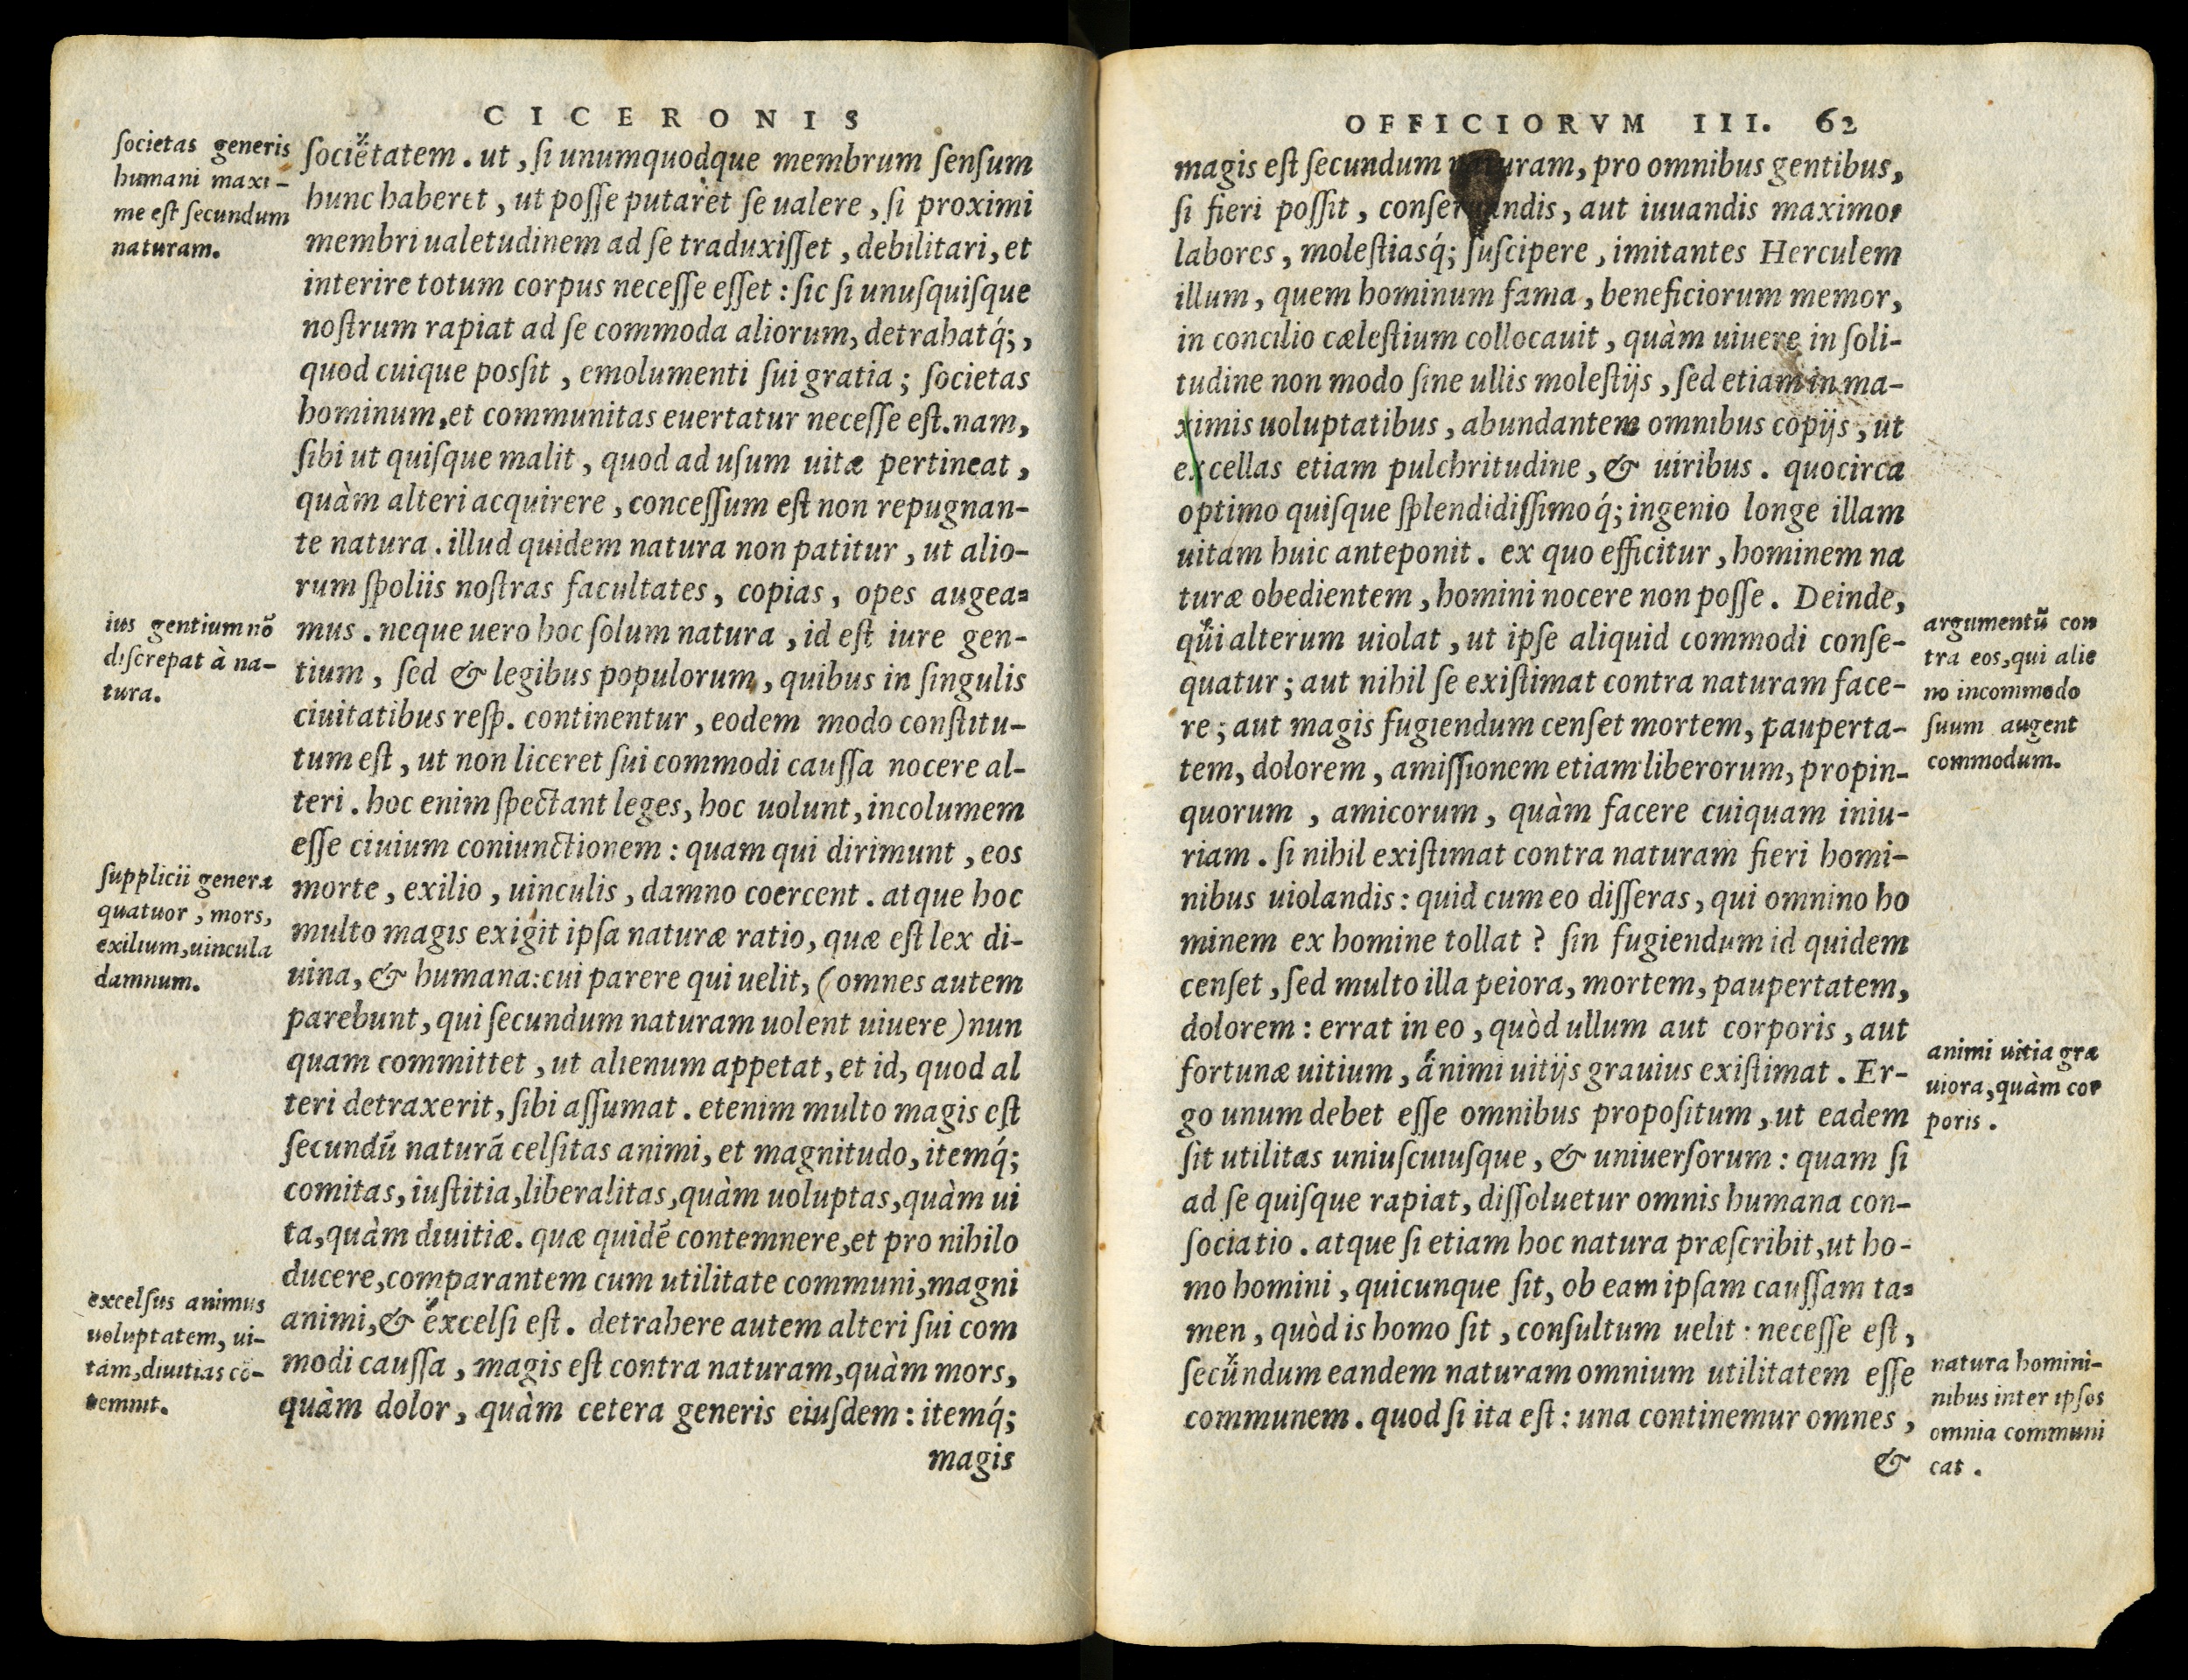 CICERONIS
ſocietas generis
humani maxi-
me eſt ſecundum
naturam.
ſocietatem. ut, ſi unumquodque membrum ſenſum
hunc haberet, ut poſſe putaret ſe ualere, ſi proximi
membri ualetudinem ad ſe traduxiſſet, debilitari, et
interire totum corpus neceſſe eſſet: ſic ſi unuſquiſque
noſtrum rapiat ad ſe commoda aliorum, detrahatq́;,
quod cuique possit, emolumenti ſui gratia; ſocietas
hominum, et communitas euertatur neceſſe eſt. nam,
ſibi ut quiſque malit, quod ad uſum uitæ pertineat,
quàm alteri acquirere, conceſſum eſt non repugnan-
te natura. illud quidem natura non patitur, ut alio-
rum ſpoliis noſtras facultates, copias, opes augea-
ius gentium nõ
diſcrepat à na-
tura.
mus. neque uero hoc ſolum natura, id eſt iure gen-
tium, ſed & legibus populorum, quibus in ſingulis
ciuitatibus reſp. continentur, eodem modo conſtitu-
tum eſt, ut non liceret ſui commodi cauſſa nocere al-
teri. hoc enim ſpectant leges, hoc uolunt, incolumem
eſſe ciuium coniunctionem: quam qui dirimunt, eos
ſupplicii genera
quatuor, mors,
exilium, uincula
damnum.
morte, exilio, uinculis, damno coercent. atque hoc
multo magis exigit ipſa naturæ ratio, quæ eſt lex di-
uina, & humana: cui parere qui uelit, (omnes autem
parebunt, qui ſecundum naturam uolent uiuere) nun
quam committet, ut alienum appetat, et id, quod al
teri detraxerit, ſibi aſſumat. etenim multo magis eſt
ſecundũ naturã celſitas animi, et magnitudo, itemq́;
comitas, iuſtitia, liberalitas, quàm uoluptas, quàm ui
ta, quàm diuitiæ. quæ quidẽ contemnere, et pro nihilo
ducere, comparantem cum utilitate communi, magni
excelſus animus
uoluptatem, ui-
tam, diuitias cõ-
temnit.
animi, & excelſi eſt. detrahere autem alteri ſui com
modi cauſſa, magis eſt contra naturam, quàm mors,
quàm dolor, quàm cetera generis eiuſdem: itemq́;
magis
OFFICIORVM III. 62
magis eſt ſecundum naturam, pro omnibus gentibus,
ſi fieri poſſit, conſeruandis, aut iuuandis maximos
labores, moleſtiasq́; ſuſcipere, imitantes Herculem
illum, quem hominum fama, beneficiorum memor,
in concilio cæleſtium collocauit, quàm uiuere in ſoli-
tudine non modo ſine ullis moleſtijs, ſed etiam in ma-
ximis uoluptatibus, abundantem omnibus copijs, ut
excellas etiam pulchritudine, & uiribus. quocirca
optimo quiſque ſplendidiſſimoq́; ingenio longe illam
uitam huic anteponit. ex quo efficitur, hominem na
turæ obedientem, homini nocere non poſſe. Deinde,
argumentũ con
tra eos, qui alie
no incommodo
ſuum augent
commodum.
qui alterum uiolat, ut ipſe aliquid commodi conſe-
quatur; aut nihil ſe exiſtimat contra naturam face-
re; aut magis fugiendum cenſet mortem, pauperta-
tem, dolorem, amiſſionem etiam liberorum, propin-
quorum, amicorum, quàm facere cuiquam iniu-
riam. ſi nihil exiſtimat contra naturam fieri homi-
nibus uiolandis: quid cum eo diſſeras, qui omnino ho
minem ex homine tollat? ſin fugiendum id quidem
cenſet, ſed multo illa peiora, mortem, paupertatem,
dolorem: errat in eo, quòd ullum aut corporis, aut
animi uitia gra
uiora, quàm cor
poris.
fortunæ uitium, animi uitijs grauius exiſtimat. Er-
go unum debet eſſe omnibus propoſitum, ut eadem
ſit utilitas uniuſcuiuſque, & uniuerſorum: quam ſi
ad ſe quiſque rapiat, diſſoluetur omnis humana con-
ſociatio. atque ſi etiam hoc natura præſcribit, ut ho-
mo homini, quicunque ſit, ob eam ipſam cauſſam ta-
men, quòd is homo ſit, conſultum uelit: neceſſe eſt,
natura homini-
nibus inter ipſos
omnia communi
cat.
ſecundum eandem naturam omnium utilitatem eſſe
communem. quod ſi ita eſt: una continemur omnes,
&